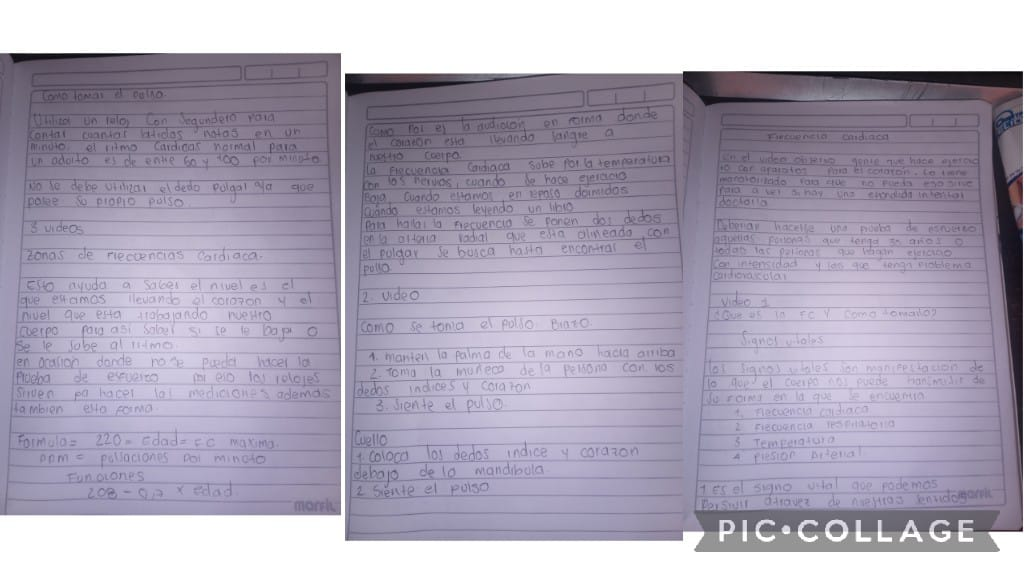 Como tomar el pulso.
Utilizar un reloj con segundero para
contar cuantas latidos notas en un
minuto. el ritmo cardicas normal para
un adulto es de entre 60 y 100 por minuto
No se debe utilizar el dedo pulgal ya que
posee su propio pulso.
3 videos
zonas de frecuencias cardiaca.
Esto ayuda a saber el nivel es el
que estamos llevando el corazon y el
nivel que esta trabajando nuestro
cuerpo para así saber si se le baja o
se le sube al ritmo.
en ocasion donde no se pueda hacer la
prueba de esfuerzo por ello los relojes
sirven pa hacer las mediciones ademas
tambien esta forma.
Formula = 220 - Edad = FC maxima.
ppm = pulsaciones por minuto
Funciones
208 - 0,7 x edad.
marfil
Como por es la audicion en forma donde
el corazón esta llevando sangre a
nuestro cuerpo
La frecuencia cardiaca sube por la temperatura
con los nervios, cuando se hace ejercicio
Baja cuando estamos en reposo dormidos
Cuando estamos leyendo un libro
Para hallar la frecuencia se ponen dos dedos
en la arteria radial que esta alineada con
el pulgar se busca hasta encontrar el
pulso
2. video
Como se toma el pulso. Brazo.
1. manten la palma de la mano hacia arriba
2. Toma la muñeca de la persona con los
dedos indices y corazon
3. Siente el pulso.
Cuello
1. Coloca los dedos indice y corazon
debajo de la mandibula.
2. Siente el pulso
Frecuencia cardiaca
En el video observo gente que hace ejercio
io con aparatos para el corazon. Lo tiene
para que no pueda eso sirve
para a ver si hay una
Deberian hacerse una prueba de esfuerzo
aquellas personas que tenga 35 años o
todas las personas que hagan ejercicio
con intensidad y las que tenga problema
cardiovascular
Video 1
¿Que es la FC y como tomarlo?
Signos vitales
los signos vitales son manifestacion de
lo que el cuerpo nos puede transmitir de
su forma en la que se encuentra
1. Frecuencia cardiaca
2 Frecuencia respiratoria
3 Temperatura
4 Presion Arterial
1 Es el signo vital que podemos
persivir atravez de nuestros sentidos
marfil
PIC•COLLAGE